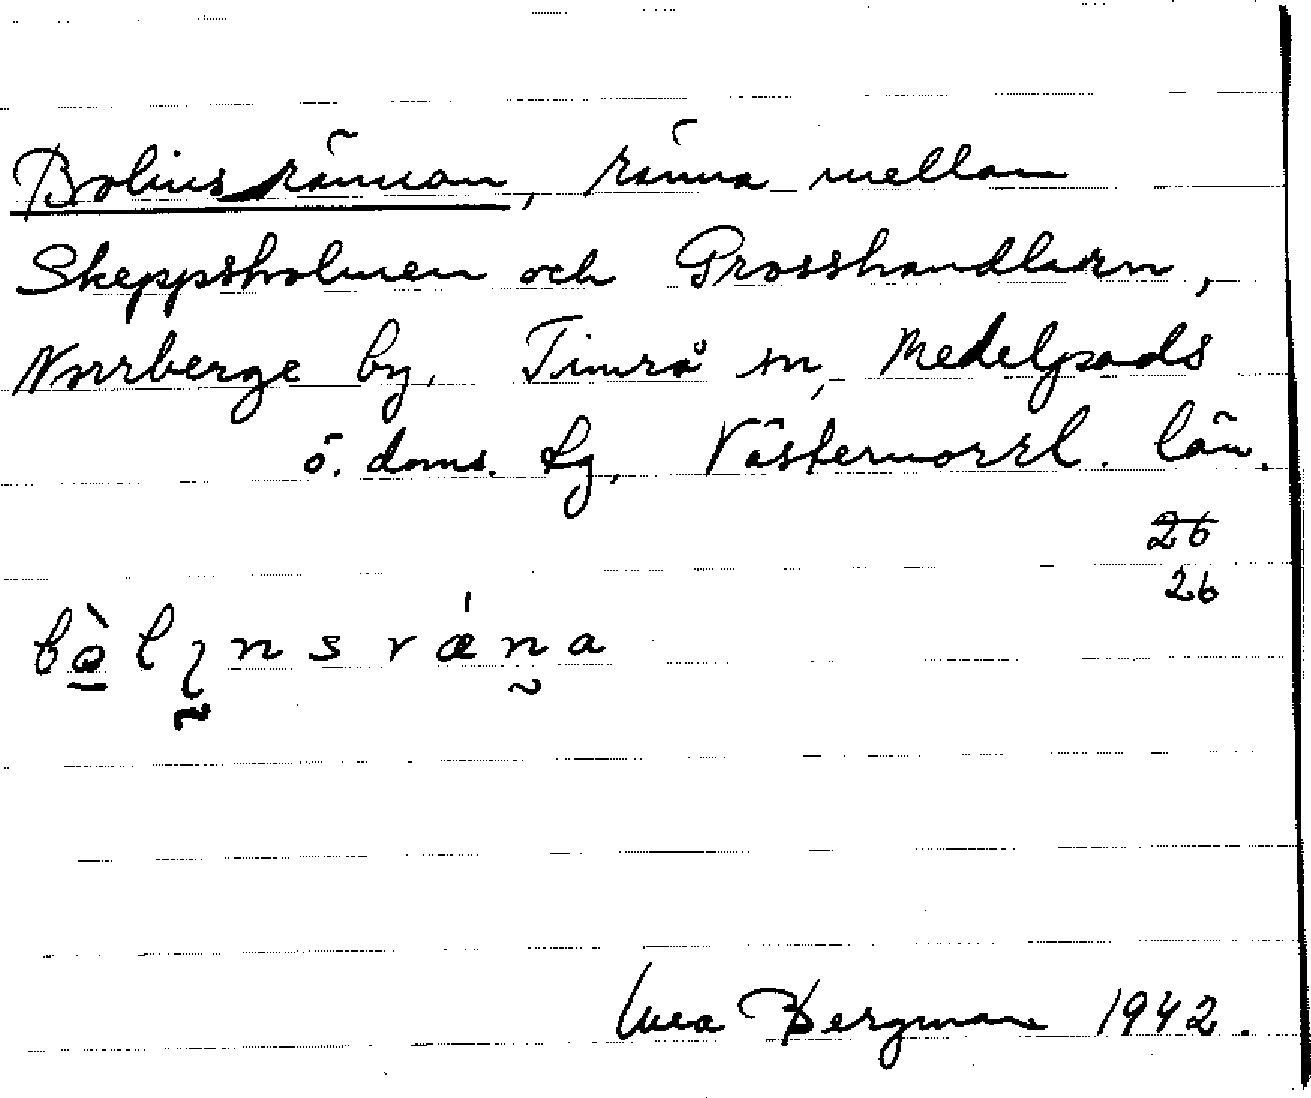 Bolinsrännan, ränna mellan
Skeppsholmen och Grosshandlarn,
Norrberge by, Timrå sn, Medelpads
ö. doms. tg, Västernorrl. län.
26
26
Bergman 1942.